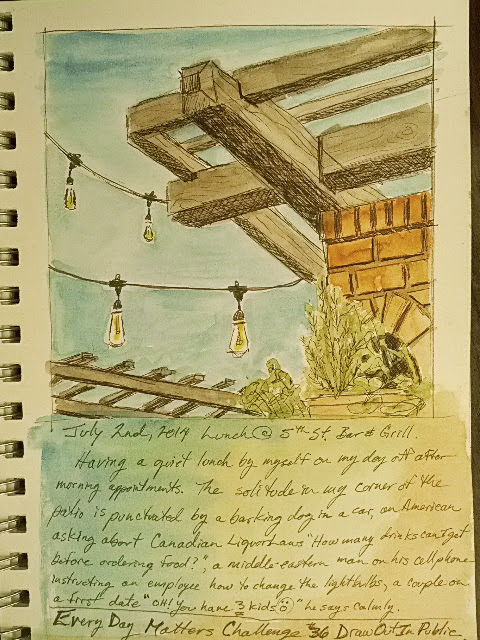 July 2nd, 2019 Lunch @ 5th St. Bar & Grill.
Having a quiet lunch by myself on my day off after
morning appointments. The solitude in my corner of the
patio is punctuated by a barking dog in a car, an American
asking about Canadian Liquor Laws "How many drinks can I get
before ordering food?", a middle-eastern man on his cellphone
instructing an employee how to change the lightbulbs, a couple on
a first date "OH! You have 3 kids" he says calmly.
Every Day Matters Challenge #36 Draw Out In Public.